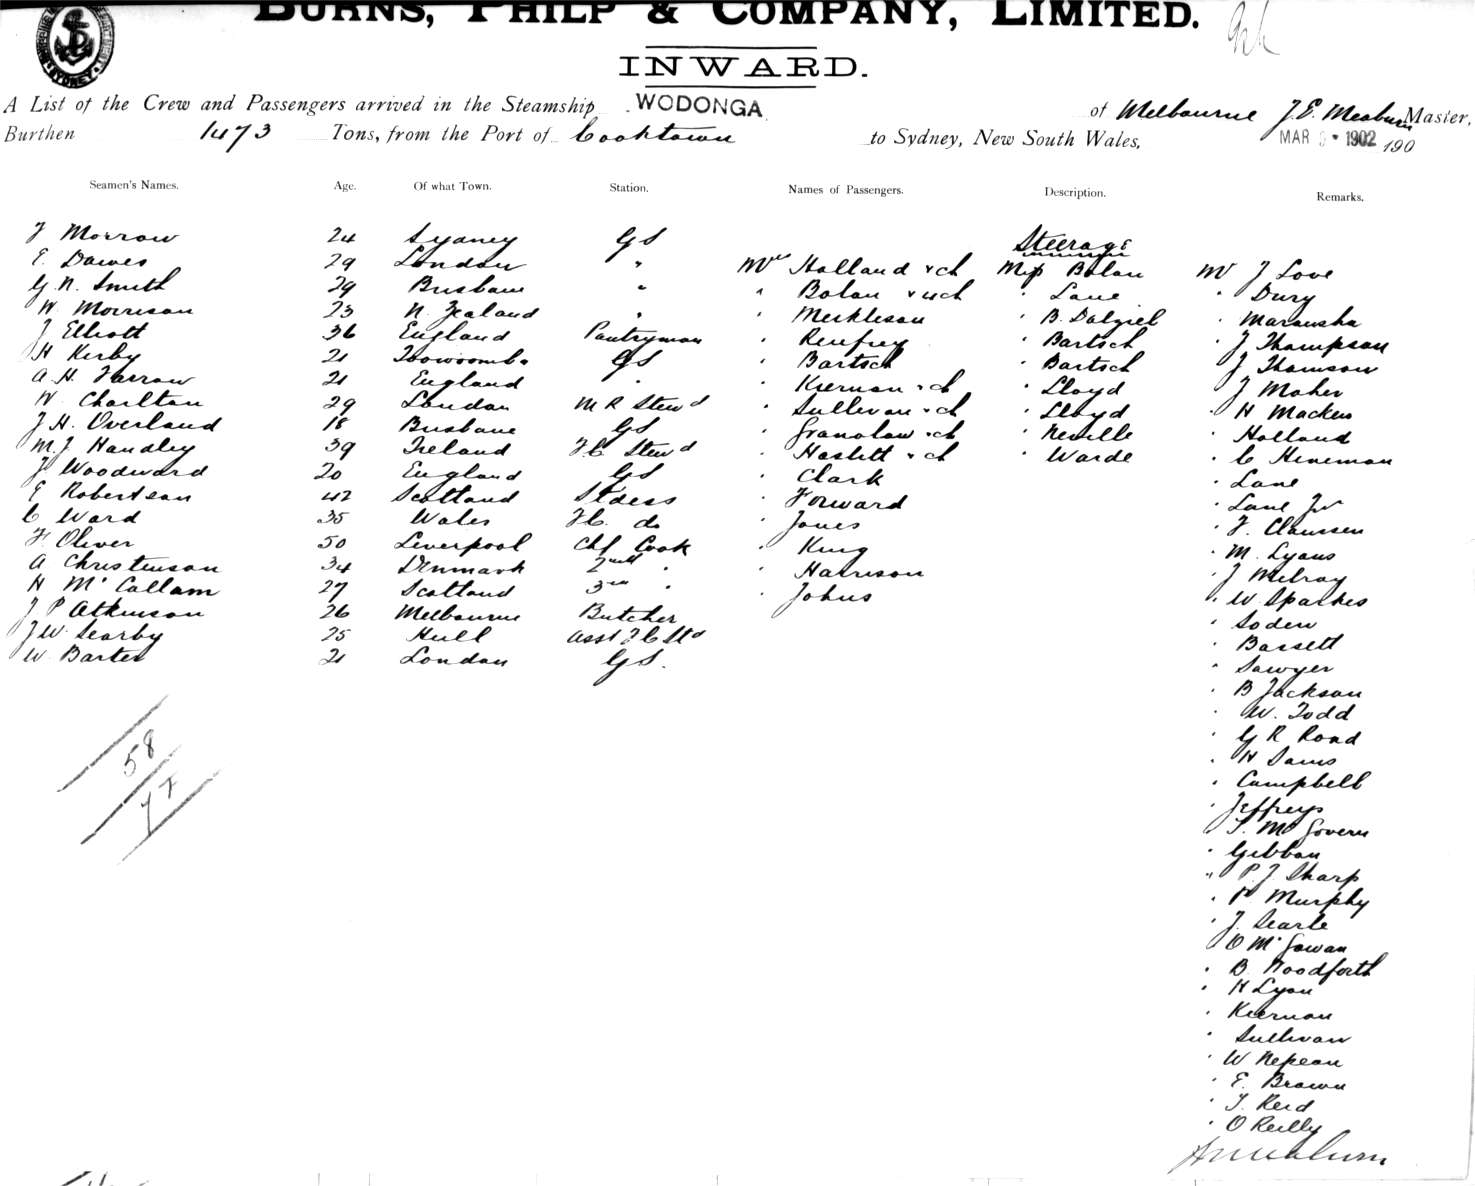 BURNS, PHILP & COMPANY, LIMITED.
INWARD.
SYDNEY
A List of the Crew and Passengers arrived in the Steamship WODONGA of Melbourne J.E. Meaburn Master,
Burthen 1473 Tons, from the Port of Cooktown to Sydney, New South Wales, MAR 1902 190
Seamen's Names. Age. Of what Town. Station. Names of Passengers. Description. Remarks.
J Morrow 24 Sydney GS
E. Dawes 29 London "
G. N. Smith 29 Brisbane "
W. Morrison 23 N. Zealand "
J Elliott 36 England Pantryman
H Kerby 21 Toowoomba GS
A. H. Farrow 21 England "
W. Charlton 29 London M R Stewd
J. H. Overland 18 Brisbane GS
M. J. Handley 39 Ireland F.C. Stewd
J. Woodward 20 England GS
E Robertson 42 Scotland Stdess
C Ward 35 Wales F.C. do
F. Oliver 50 Liverpool Chf Cook
A Christenson 34 Denmark 2nd "
H McCallam 27 Scotland 3rd "
J P Atkinson 26 Melbourne Butcher
J W. Searby 25 Hull Asst F C Std
W. Barter 21 London GS.
58
77
Steerage
Mrs Holland & ch
" Bolan & 4 ch
" Merkleson
" Renfrey
" Bartsch
" Kiernan & ch
" Sullivan & ch
" & ch
" Haslett & ch
" Clark
" Forward
" Jones
" King
" Harrison
" Johns
Miss Bolan
" Lane
" B. Dalziel
" Bartsch
" Bartsch
" Lloyd
" Lloyd
" Neville
" Warde
Mr J Love
" Dury
" Marousha
" J Thompson
" J Thomson
" J Maher
" H Macken
" Holland
" C Heneman
" Lane
" Lane Jr
" F. Claussen
" M. Lyons
" J Melroy
" W Sparkes
" Soden
" Bassett
" Sawyer
" B Jackson
" W. Todd
" G R Road
" H Sams
" Campbell
" Jeffreys
" T. McGovern
" Gibbon
" P. J. Sharp
" P. Murphy
" J. Searle
" O McGowan
" B. Woodforth
" H Lyon
" Kiernan
" Sullivan
" W Nepean
" E. Brown
" T. Reid
" O Reilly